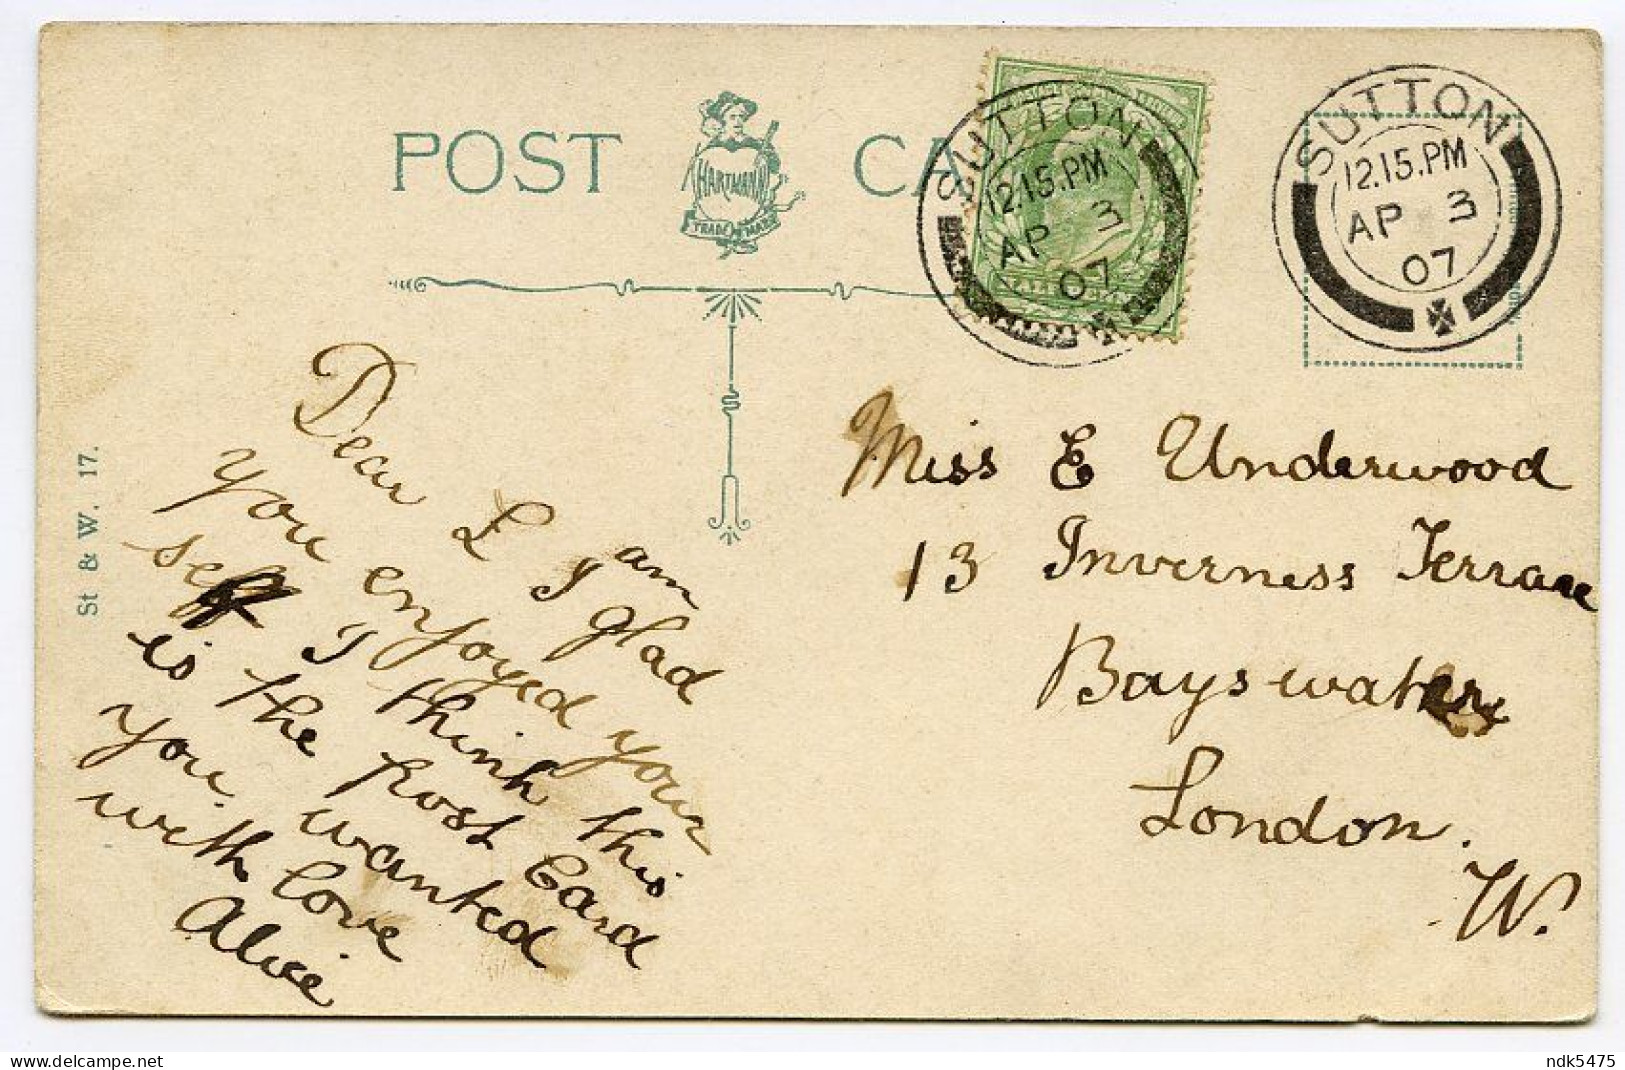 POST CA
HARTMANN
TRADE MARK
SUTTON
12.15.PM
AP 3
07
SUTTON
12.15.PM
AP 3
07
St & W. 17.
Dear E I am glad
you enjoyed your
self I think this
is the post Card
you wanted
with love
Alice
Miss E Underwood
13 Inverness Terrace
Bayswater
London.
W.
ndk5475